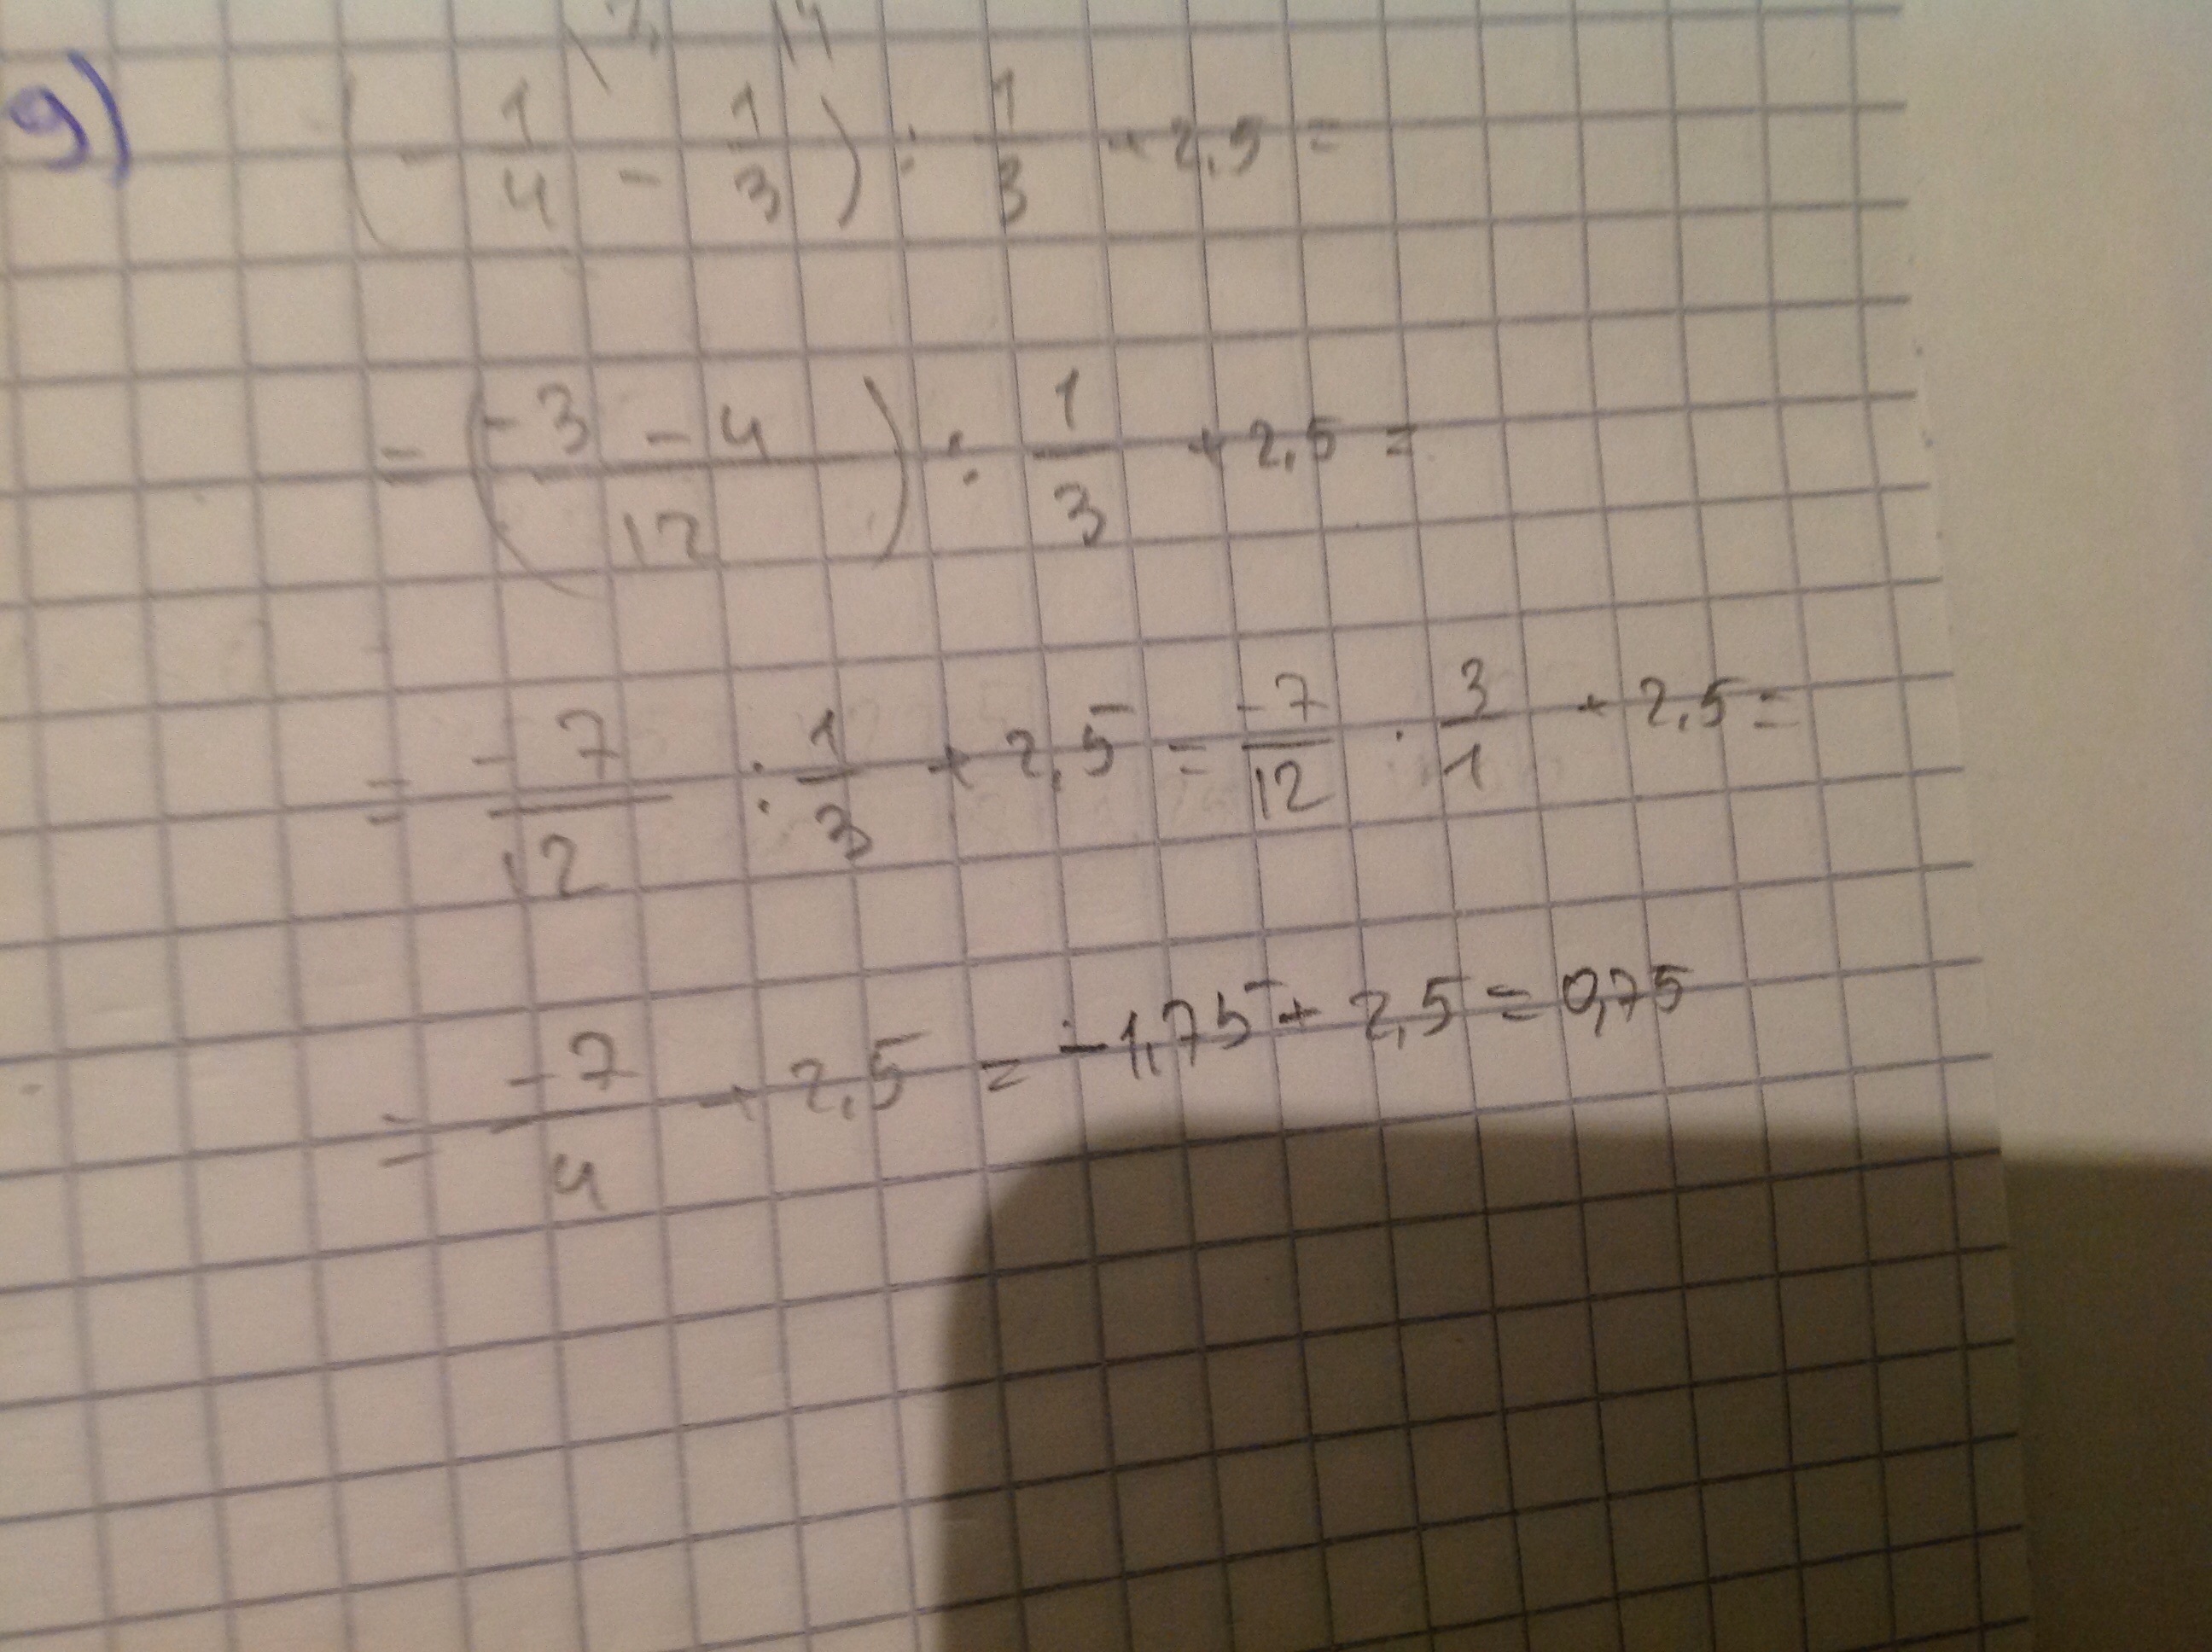 9) (- 1/4 - 1/3) : 1/3 + 2,5 =
= (-3 - 4 / 12) : 1/3 + 2,5 =
= -7/12 : 1/3 + 2,5 = -7/12 · 3/1 + 2,5 =
= -7/4 + 2,5 = -1,75 + 2,5 = 0,75